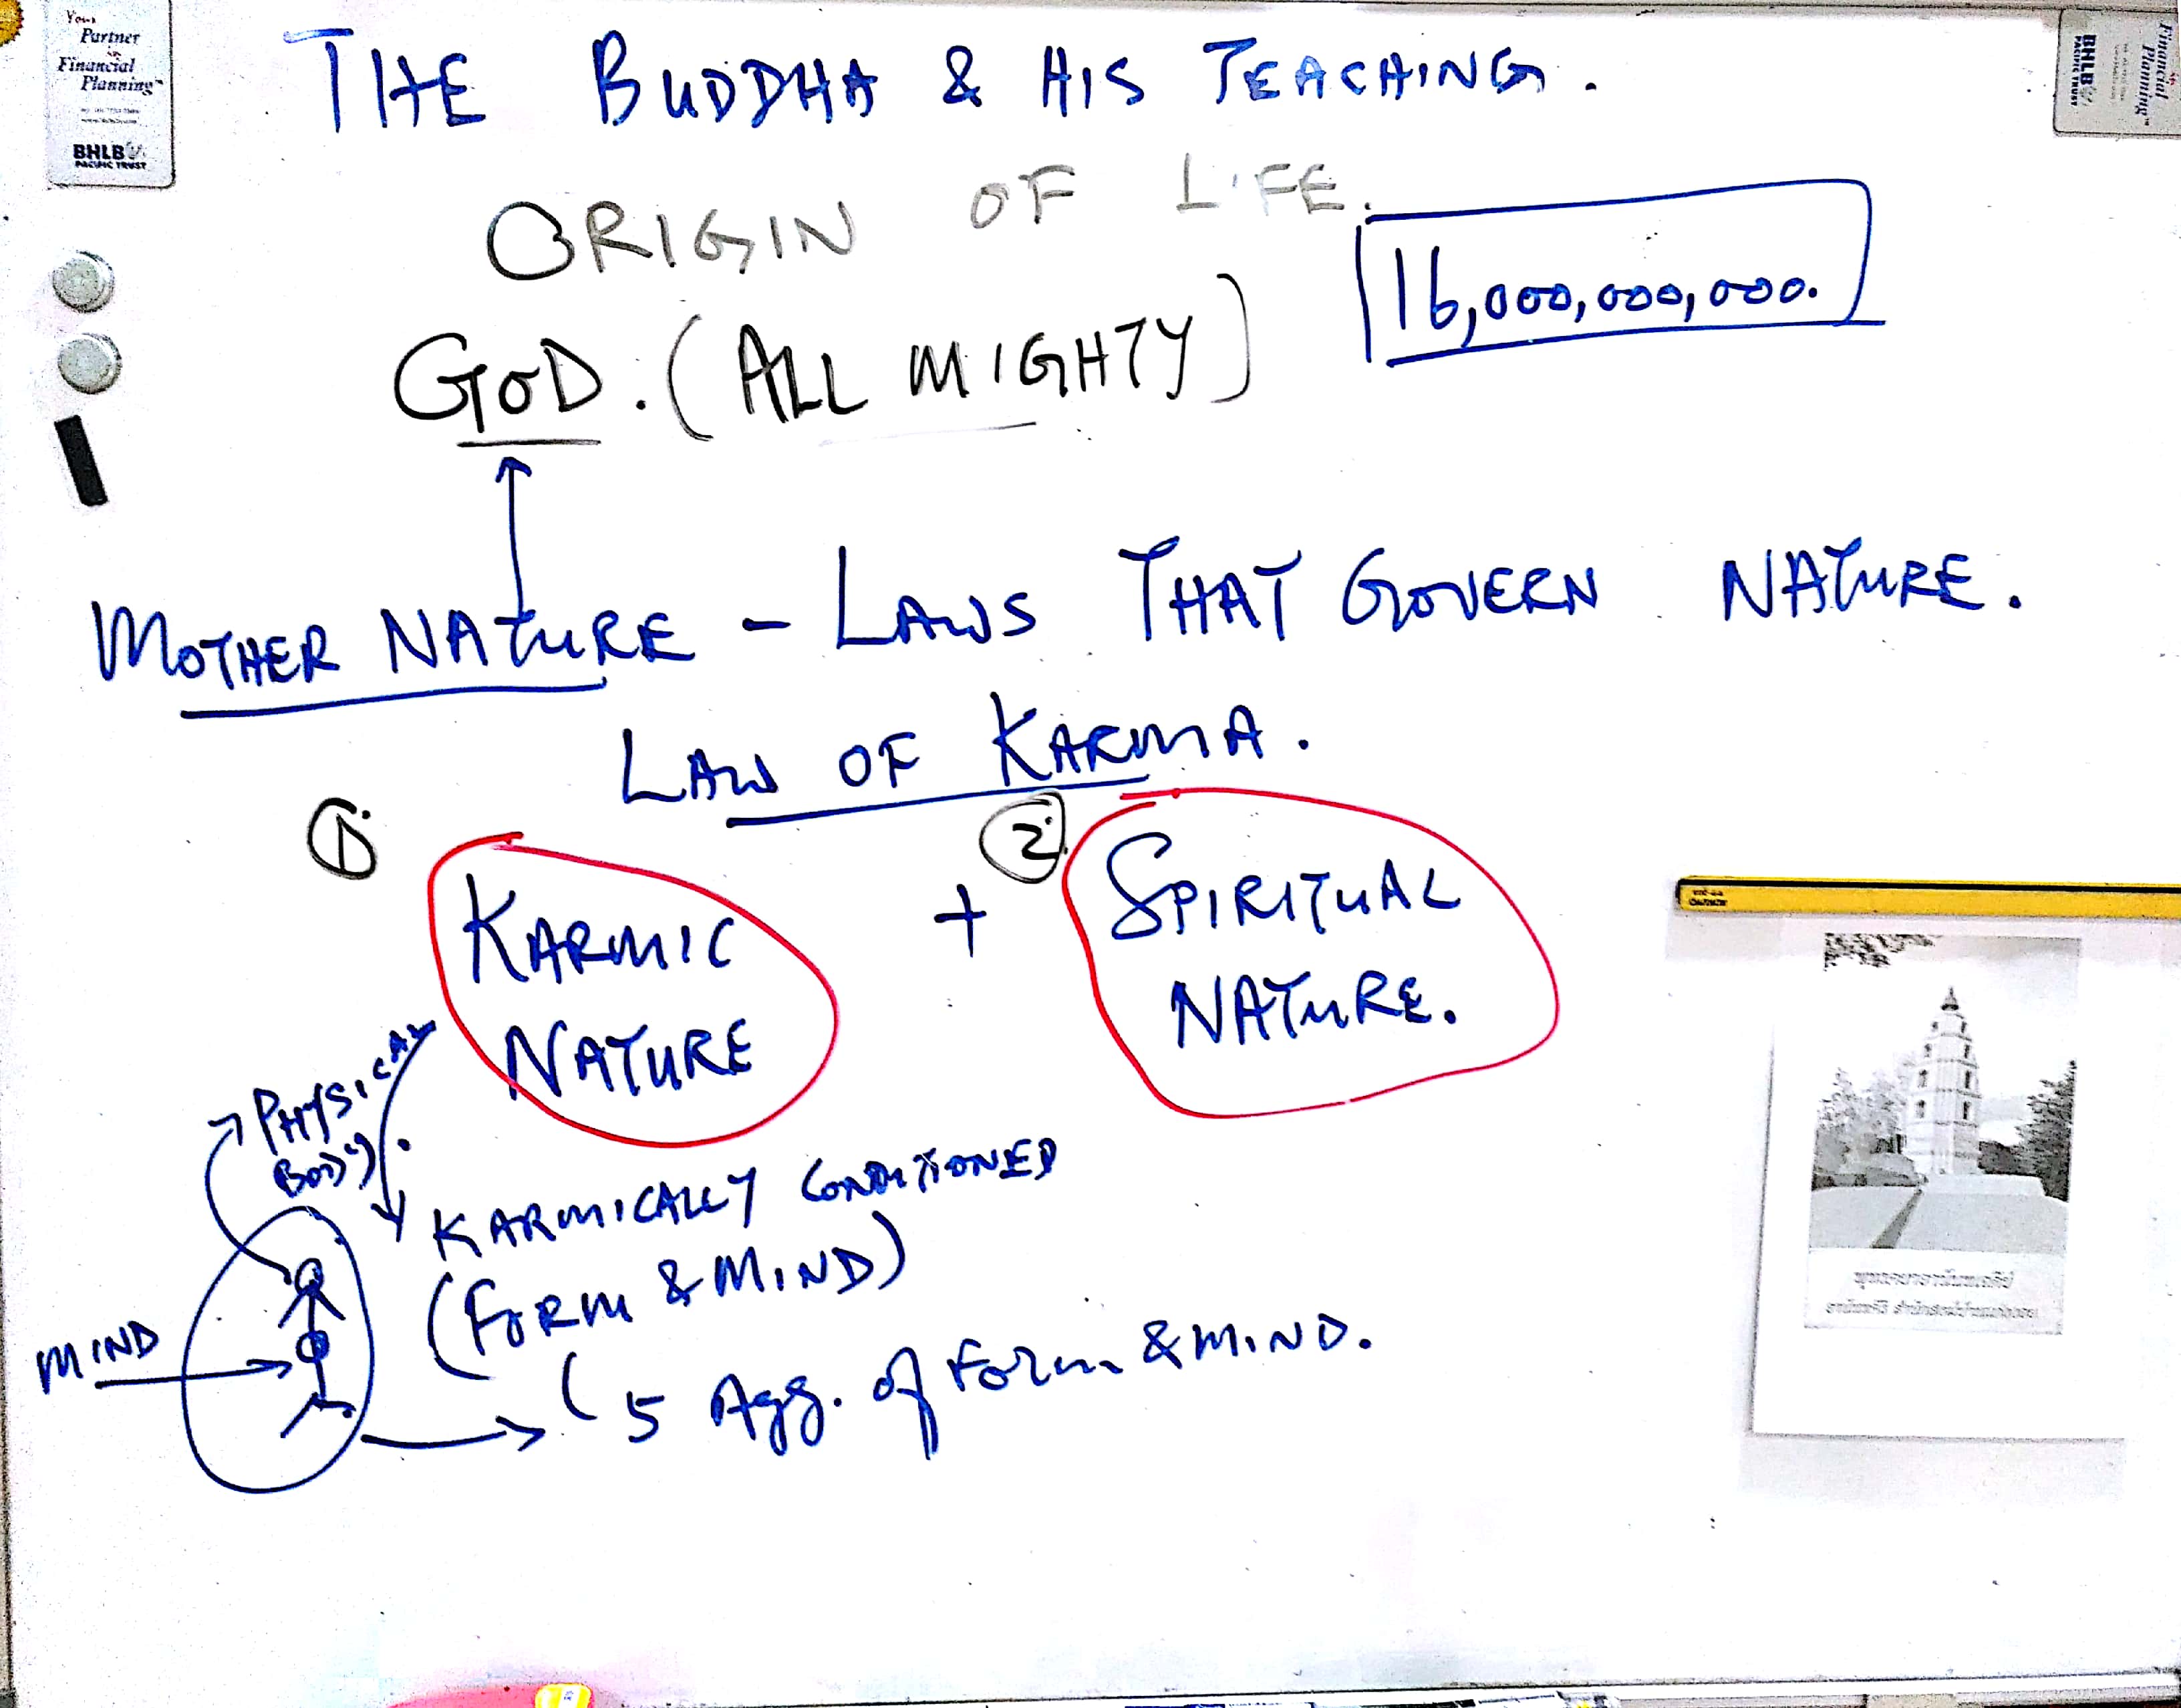 Your
Partner
in
Financial
Planning
BHLB
PACIFIC TRUST
Financial
Planning
BHLB
PACIFIC TRUST
THE BUDDHA & HIS TEACHING.
ORIGIN OF LIFE.
16,000,000,000.
GOD. (ALL MIGHTY)
MOTHER NATURE - LAWS THAT GOVERN NATURE.
LAW OF KARMA.
1. 2.
KARMIC + SPIRITUAL
NATURE NATURE.
PHYSICAL
BODY.
KARMICALLY CONDITIONED
(FORM & MIND)
MIND
(5 Agg. of Form & MIND.